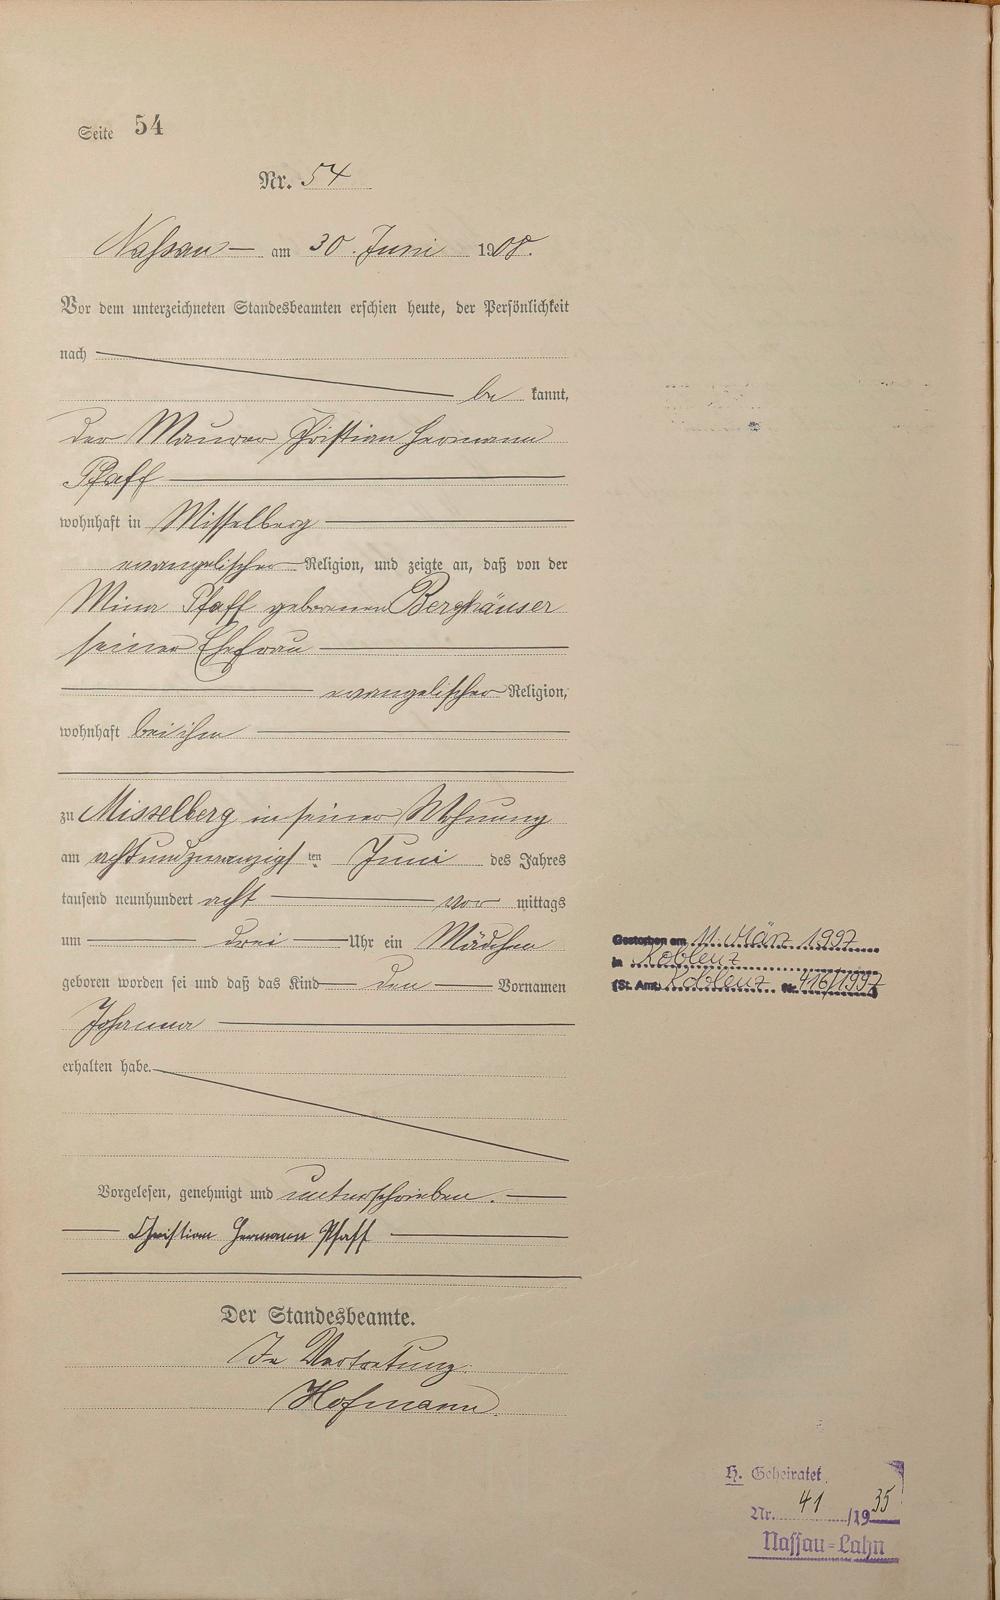 Seite 54
Nr. 54
Nassau am 30. Juni 1908.
Vor dem unterzeichneten Standesbeamten erschien heute, der Persönlichkeit
nach
be kannt,
der Maurer Christian Hermann
Pfaff
wohnhaft in Misselberg
evangelischer Religion, und zeigte an, daß von der
Mina Pfaff geborenen Berghäuser
seiner Ehefrau
evangelischer Religion,
wohnhaft bei ihm
zu Misselberg in seiner Wohnung
am achtundzwanzigsten Juni des Jahres
tausend neunhundert acht vor mittags
um drei Uhr ein Mädchen
geboren worden sei und daß das Kind den Vornamen
Johanna
erhalten habe.
Vorgelesen, genehmigt und unterschrieben.
Christian Hermann Pfaff
Der Standesbeamte.
In Vertretung:
Hofmann.
Gestorben am 11. März 1997
in Koblenz
(St. Amt Koblenz Nr. 416/1997)
H. Geheiratet
Nr. 41 /1935
Nassau-Lahn